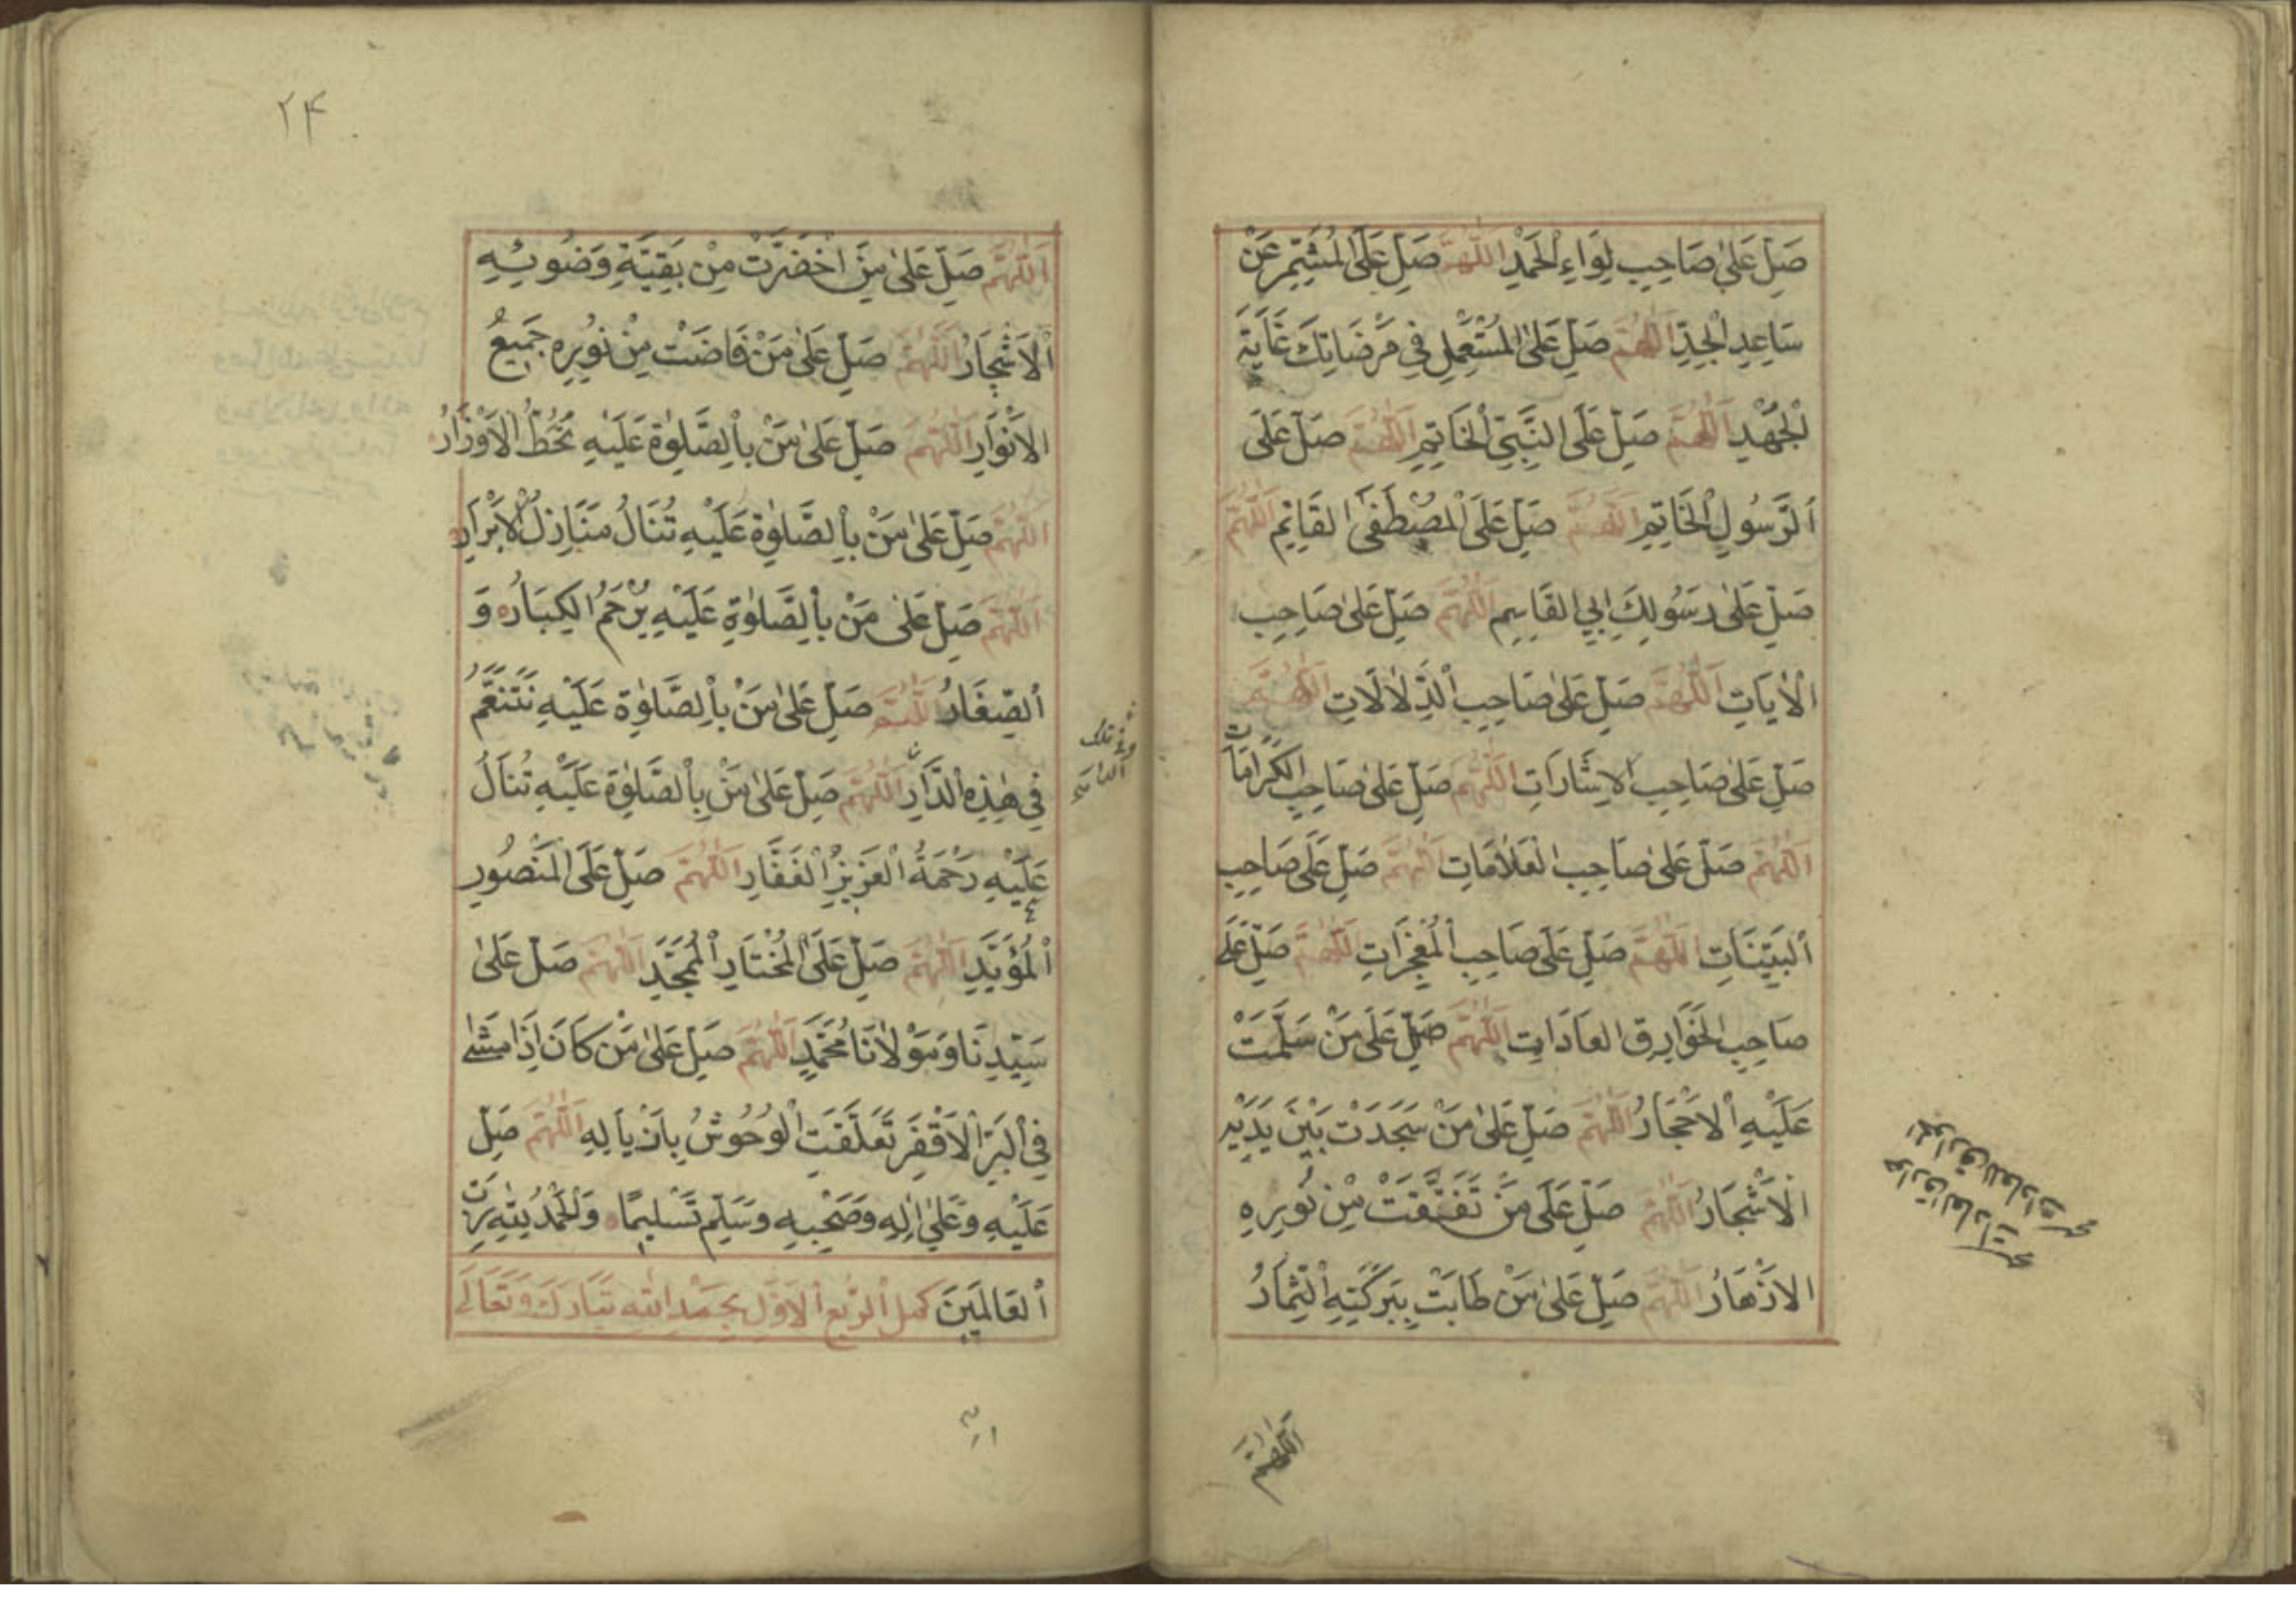 صَلِّ عَلٰى صَاحِبِ لِوَاءِ الْحَمْدِ اَللّٰهُمَّ صَلِّ عَلَى الْمُشَمِّرِ عَنْ
سَاعِدِ الْجِدِّ اَللّٰهُمَّ صَلِّ عَلَى الْمُسْتَعْمِلِ فِي مَرْضَاتِكَ غَايَةَ
الْجُهْدِ اَللّٰهُمَّ صَلِّ عَلَى النَّبِيِّ الْخَاتِمِ اَللّٰهُمَّ صَلِّ عَلَى
اَلرَّسُولِ الْخَاتِمِ اَللّٰهُمَّ صَلِّ عَلَى الْمُصْطَفَى الْقَائِمِ اَللّٰهُمَّ
صَلِّ عَلٰى رَسُولِكَ اَبِي الْقَاسِمِ اَللّٰهُمَّ صَلِّ عَلٰى صَاحِبِ
الْاٰيَاتِ اَللّٰهُمَّ صَلِّ عَلٰى صَاحِبِ الدَّلَالَاتِ اَللّٰهُمَّ
صَلِّ عَلٰى صَاحِبِ الْاِشَارَاتِ اَللّٰهُمَّ صَلِّ عَلٰى صَاحِبِ الْكَرَامَاتِ
اَللّٰهُمَّ صَلِّ عَلٰى صَاحِبِ الْعَلَامَاتِ اَللّٰهُمَّ صَلِّ عَلٰى صَاحِبِ
اَلْبَيِّنَاتِ اَللّٰهُمَّ صَلِّ عَلٰى صَاحِبِ الْمُعْجِزَاتِ اَللّٰهُمَّ صَلِّ عَلٰى
صَاحِبِ الْخَوَارِقِ الْعَادَاتِ اَللّٰهُمَّ صَلِّ عَلٰى مَنْ سَلَّمَتْ
عَلَيْهِ الْاَحْجَارُ اَللّٰهُمَّ صَلِّ عَلٰى مَنْ سَجَدَتْ بَيْنَ يَدَيْهِ
الْاَشْجَارُ اَللّٰهُمَّ صَلِّ عَلٰى مَنْ تَفَتَّقَتْ مِنْ نُورِهِ
الْاَزْهَارُ اَللّٰهُمَّ صَلِّ عَلٰى مَنْ طَابَتْ بِبَرَكَتِهِ الثِّمَارُ
اَللّٰهُمَّ
الخوارق العادات صح
خوارق العادات صح
۲۴
اَللّٰهُمَّ صَلِّ عَلٰى مَنِ اخْضَرَّتْ مِنْ بَقِيَّةِ وَضُوئِهِ
اَلْاَشْجَارُ اَللّٰهُمَّ صَلِّ عَلٰى مَنْ فَاضَتْ مِنْ نُورِهِ جَمِيعُ
الْاَنْوَارِ اَللّٰهُمَّ صَلِّ عَلٰى مَنْ بِالصَّلٰوةِ عَلَيْهِ تُحَطُّ الْاَوْزَارُ
اَللّٰهُمَّ صَلِّ عَلٰى مَنْ بِالصَّلٰوةِ عَلَيْهِ تُنَالُ مَنَازِلُ الْاَبْرَارِ
اَللّٰهُمَّ صَلِّ عَلٰى مَنْ بِالصَّلٰوةِ عَلَيْهِ يُرْحَمُ الْكِبَارُ وَ
اَلصِّغَارُ اَللّٰهُمَّ صَلِّ عَلٰى مَنْ بِالصَّلٰوةِ عَلَيْهِ نَتَنَعَّمُ
فِي هٰذِهِ الدَّارِ اَللّٰهُمَّ صَلِّ عَلٰى مَنْ بِالصَّلٰوةِ عَلَيْهِ تُنَالُ
عَلَيْهِ رَحْمَةُ الْعَزِيزِ الْغَفَّارِ اَللّٰهُمَّ صَلِّ عَلَى الْمَنْصُورِ
اَلْمُؤَيَّدِ اَللّٰهُمَّ صَلِّ عَلَى الْمُخْتَارِ الْمُمَجَّدِ اَللّٰهُمَّ صَلِّ عَلٰى
سَيِّدِنَا وَمَوْلَانَا مُحَمَّدٍ اَللّٰهُمَّ صَلِّ عَلٰى مَنْ كَانَ اِذَا مَشٰى
فِي الْبَرِّ الْاَقْفَرِ تَعَلَّقَتِ الْوُحُوشُ بِاَذْيَالِهِ اَللّٰهُمَّ صَلِّ
عَلَيْهِ وَعَلٰى اٰلِهِ وَصَحْبِهِ وَسَلِّمْ تَسْلِيمًا وَالْحَمْدُ لِلّٰهِ رَبِّ
اَلْعَالَمِينَ كمل الرُّبع الْاَوَّل بِحَمْدِ اللّٰهِ تَبَارَكَ وَتَعَالٰى
وفي تلك
الدار صح